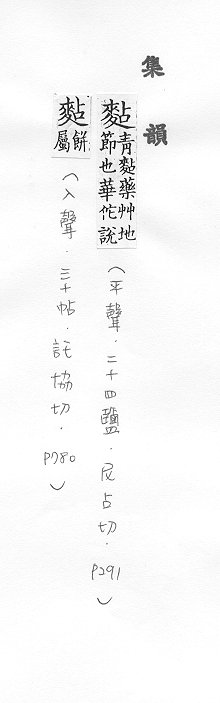 集韻
䴴青䴴藥艸地節也華佗說（平聲．二十四鹽．尼占切．P291）
䴴餅屬（入聲．三十帖．託協切．P780）